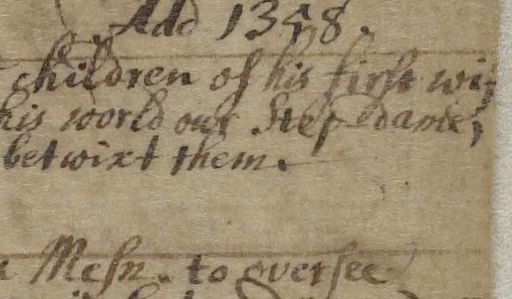 Add 1358.
children of his first wif
his world our Step-dame,
betwixt them.
Mesn. to oversee